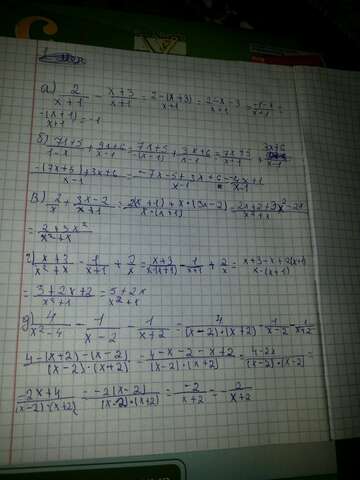 а) 2/(x+1) - (x+3)/(x+1) = (2-(x+3))/(x+1) = (2-x-3)/(x+1) = (-x-1)/(x+1) =
-(x+1)/(x+1) = -1
б) (7x+5)/(1-x) + (3x+6)/(x-1) = (7x+5)/(-(x-1)) + (3x+6)/(x-1) = (7x+5)/(x-1) + (3x+6)/(x-1)
(-(7x+5)+3x+6)/(x-1) = (-7x-5+3x+6)/(x-1) = (-4x+1)/(x-1)
в) 2/x + (3x-2)/(x+1) = (2(x+1)+x·(3x-2))/(x·(x+1)) = (2x+2+3x²-2x)/(x²+x)
= (2+3x²)/(x²+x)
г) (x+3)/(x²+x) - 1/(x+1) + 2/x = (x+3)/(x(x+1)) - 1/(x+1) + 2/x = (x+3-x+2(x+1))/(x·(x+1))
= (3+2x+2)/(x²+1) = (5+2x)/(x²+1)
д) 4/(x²-4) - 1/(x-2) - 1/(x+2) = 4/((x-2)·(x+2)) - 1/(x-2) - 1/(x+2)
(4-(x+2)-(x-2))/((x-2)·(x+2)) = (4-x-2-x+2)/((x-2)·(x+2)) = (4-2x)/((x-2)·(x-2)) =
(-2x+4)/((x-2)·(x+2)) = (-2(x-2))/((x-2)·(x+2)) = -2/(x+2) = -2/(x+2)